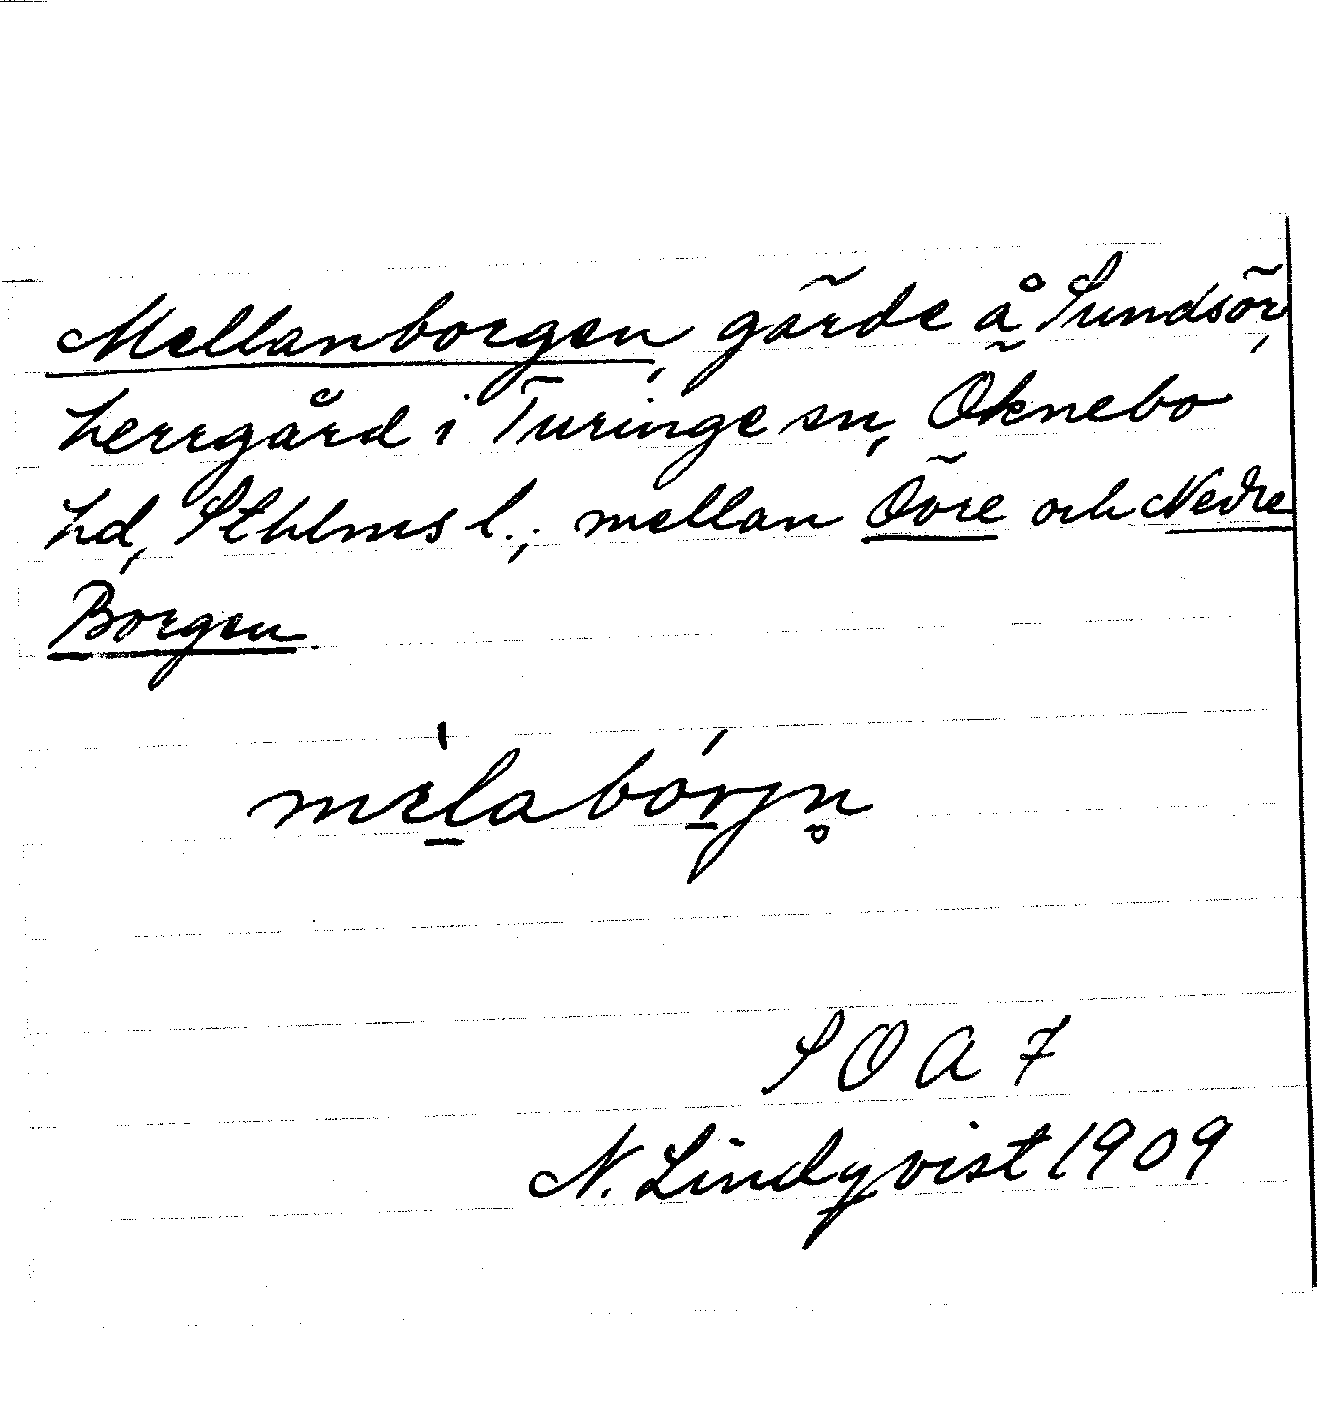 Mellanborgen, gärde å Sundsör,
herrgård i Turinge sn, Öknebo
hd, Sthlms l.; mellan Övre och Nedre
Borgen.
mèlabórjn̥
S O A 7
N. Lindqvist 1909